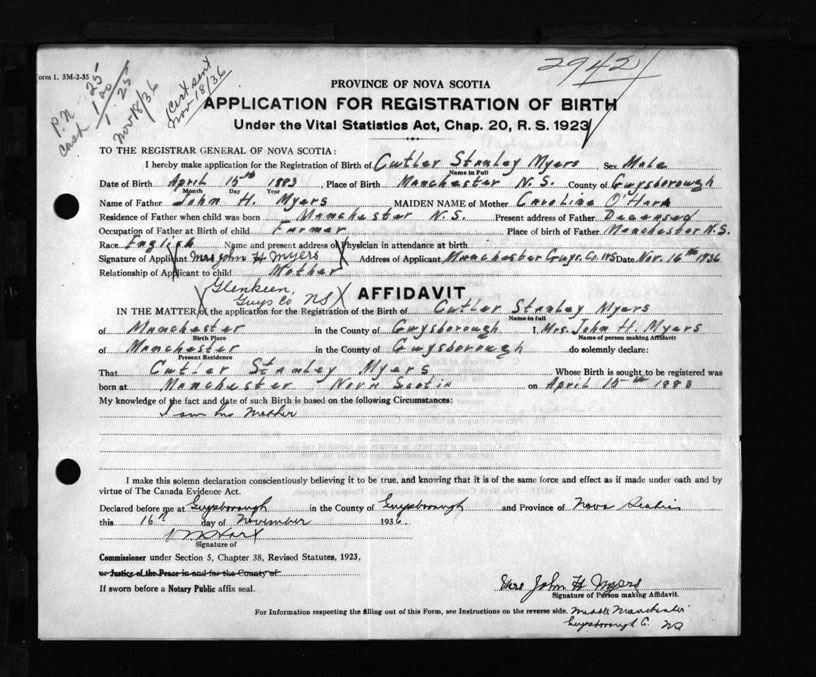 Form 1. 5M-2-35
2942
P.N. 25
Cash 1.00
1 25
Nov 18/36
Cert sent
Nov 18/36
PROVINCE OF NOVA SCOTIA
APPLICATION FOR REGISTRATION OF BIRTH
Under the Vital Statistics Act, Chap. 20, R. S. 1923
TO THE REGISTRAR GENERAL OF NOVA SCOTIA:
I hereby make application for the Registration of Birth of Cutler Stanley Myers Sex Male
Name in Full
Date of Birth April 15th 1883, Place of Birth Manchester N.S. County of Guysborough
Month Day Year
Name of Father John H. Myers MAIDEN NAME of Mother Caroline O'Hara
Residence of Father when child was born Manchester N.S. Present address of Father Deceased
Occupation of Father at Birth of child Farmer Place of birth of Father Manchester N.S.
Race English Name and present address of Physician in attendance at birth
Signature of Applicant Mrs John H Myers Address of Applicant Manchester Guys. Co. NS Date Nov. 16th 1936
Relationship of Applicant to child Mother
Glenkeen,
Guys Co NS
AFFIDAVIT
IN THE MATTER of the application for the Registration of the Birth of Cutler Stanley Myers
Name in full
of Manchester in the County of Guysborough I, Mrs. John H. Myers
Birth Place Name of person making Affidavit
of Manchester in the County of Guysborough do solemnly declare:
Present Residence
That Cutler Stanley Myers Whose Birth is sought to be registered was
born at Manchester Nova Scotia on April 15th 1883
My knowledge of the fact and date of such Birth is based on the following Circumstances:
I am his Mother
I make this solemn declaration conscientiously believing it to be true, and knowing that it is of the same force and effect as if made under oath and by
virtue of The Canada Evidence Act.
Declared before me at Guysborough in the County of Guysborough and Province of Nova Scotia
this 16th day of November 1936.
Signature of
Commissioner under Section 5, Chapter 38, Revised Statutes, 1923,
or Justice of the Peace in and for the County of
If sworn before a Notary Public affix seal.
Mrs John H Myers
Signature of Person making Affidavit.
For Information respecting the filling out of this Form, see Instructions on the reverse side.
Middle Manchester
Guysborough C. NS